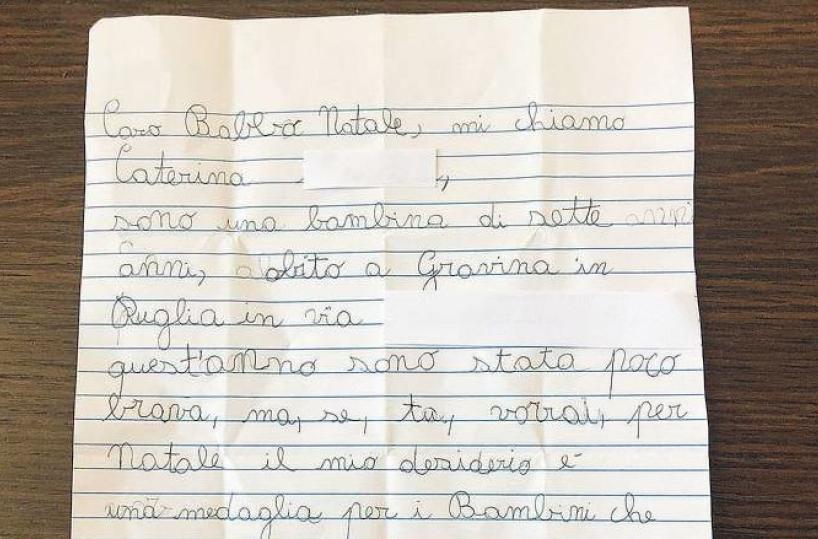 Caro Babbo Natale, mi chiamo
Caterina ,
sono una bambina di sette anni
anni, abito a Gravina in
Puglia in via
quest'anno sono stata poco
brava, ma, se, tu, vorrai, per
Natale il mio desiderio è
una medaglia per i Bambini che